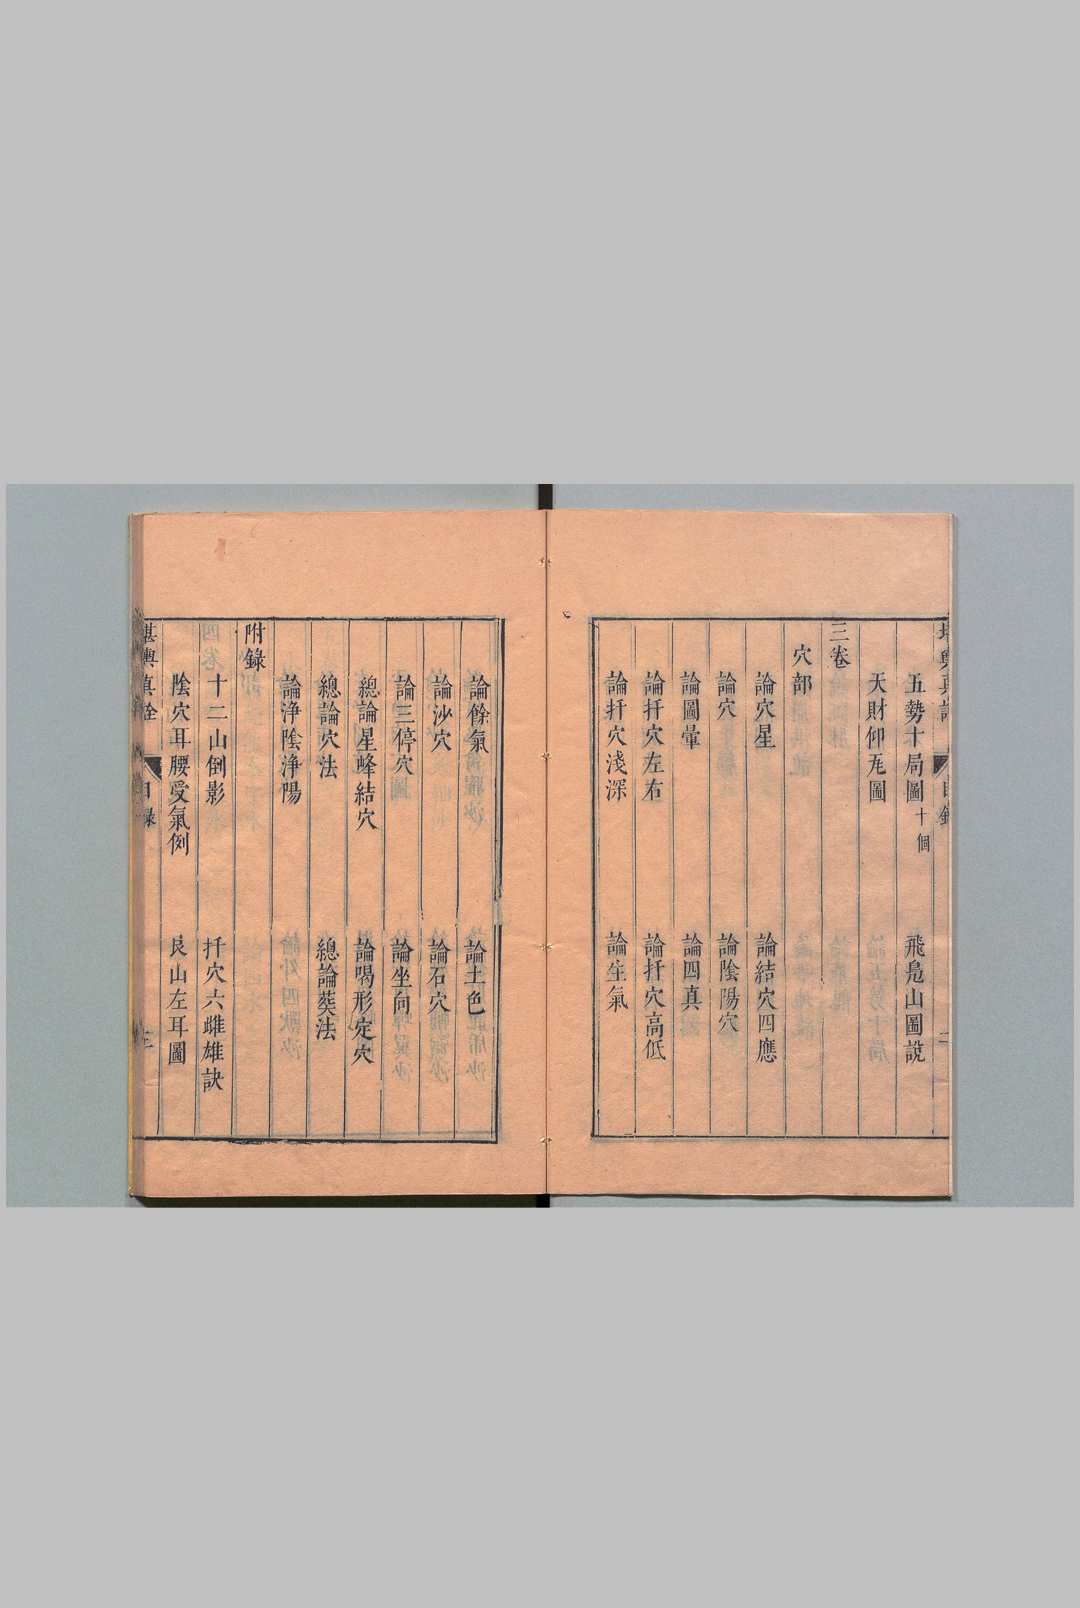 五勢十局圖十個　飛鳧山圖說
天財仰瓦圖
三卷
穴部
論穴星　論結穴四應
論穴　論陰陽穴
論圖暈　論四真
論扦穴左右　論扦穴高低
論扦穴淺深　論生氣
論餘氣　論土色
論沙穴　論石穴
論三停穴　論坐向
總論星峰結穴　論喝形定穴
總論穴法　總論葬法
論淨陰淨陽
附錄
十二山倒影　扦穴六雌雄訣
陰穴耳腰受氣例　艮山左耳圖
堪輿真詮　目錄